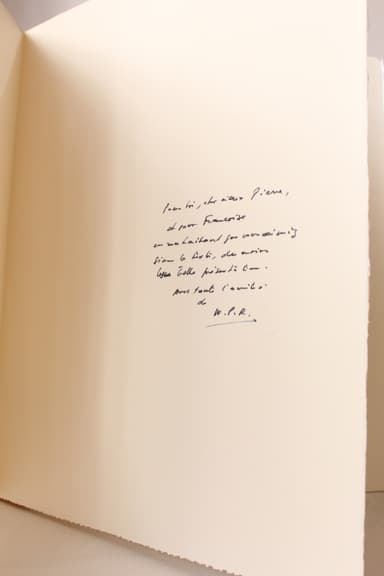 Pour toi, cher vieux Pierre,
et pour Françoise
en souhaitant que vous aimiez
sinon le texte, du moins
belle présentation.
Avec toute l'amitié
de
M.P.R.